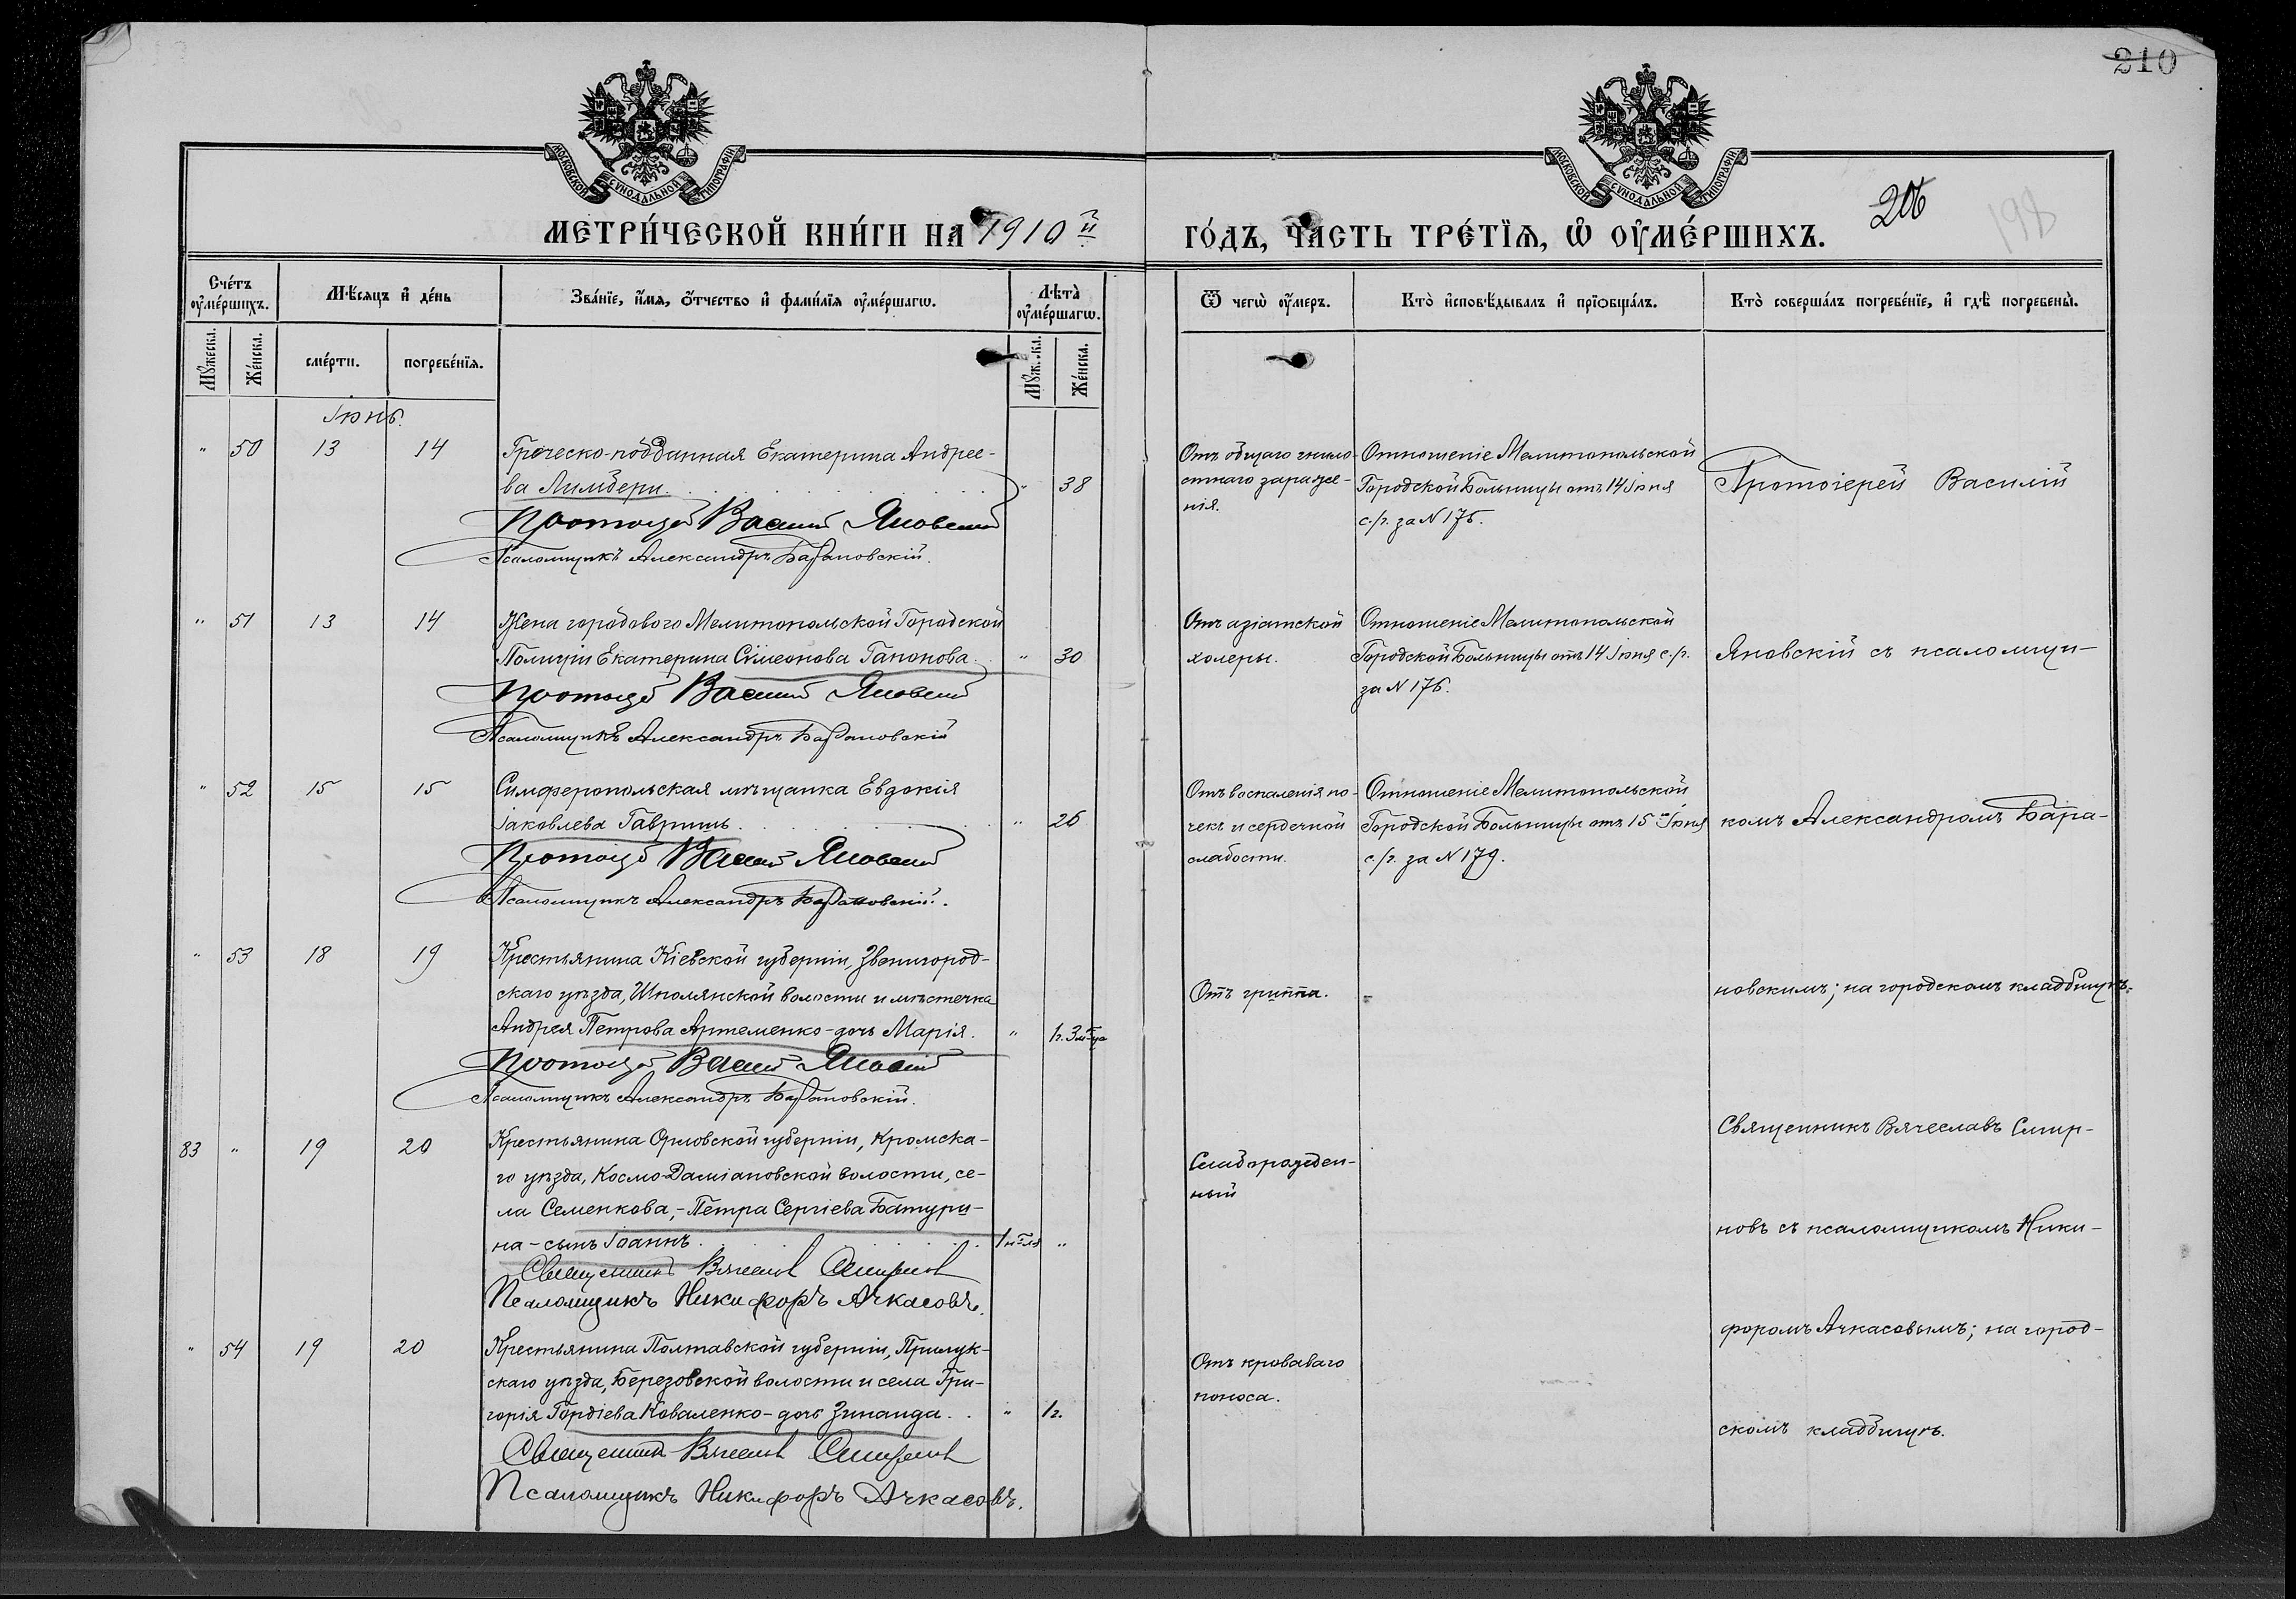 210
МОСКОВСКОЙ СѴНОДАЛЬНОЙ ТИПОГРАФІИ
МОСКОВСКОЙ СѴНОДАЛЬНОЙ ТИПОГРАФІИ
206
198
МЕТРИ́ЧЕСКОЙ КНИ́ГИ НА 1910й
ГО́ДЪ, ЧАСТЬ ТРЕ́ТІѦ, Ѿ ОУ҆МЕ́РШИХЪ.
Сче́тъ оу҆ме́ршихъ.
Мѣ́сяцъ и҆ де́нь
Зва́нїе, и҆́мѧ, ѻ҆́тчество и҆ фами́лїѧ оу҆ме́ршагѡ.
Лѣта̀ оу҆ме́ршагѡ.
Ѿ чегѡ̀ оу҆́меръ.
Кто̀ и҆сповѣ́дывалъ и҆ прїѡбща́лъ.
Кто̀ соверша́лъ погребе́нїе, и҆ гдѣ̀ погребены̀.
Мꙋжеска.
Же́нска.
сме́рти.
погребе́нїѧ.
Же́нска.
Іюнь.
" 50 13 14
Греческо-подданная Екатерина Андрее-
ва Лимбери.
" 38
Протоіерей Василій Яновскій
Псаломщикъ Александръ Барановскій.
Отъ общаго гнило-
стнаго зараже-
нія.
Отношеніе Мелитопольской
Городской Больницы отъ 14 Іюня
с./г. за N 176.
Протоіерей Василій
" 51 13 14
Жена городового Мелитопольской Городской
Полиціи Екатерина Симеонова Гапонова.
" 30
Протоіерей Василій Яновскій
Псаломщикъ Александръ Барановскій
Отъ азіатской
холеры.
Отношеніе Мелитопольской
Городской Больницы отъ 14 Іюня с./г.
за N 176.
Яновскій съ псаломщи-
" 52 15 15
Симферопольская мѣщанка Евдокія
Іаковлева Гавришъ
" 26
Протоіерей Василій Яновскій
Псаломщикъ Александръ Барановскій.
Отъ воспаленія по-
чекъ и сердечной
слабости.
Отношеніе Мелитопольской
Городской Больницы отъ 15 Іюня
с./г. за N 179.
комъ Александромъ Бара-
" 53 18 19
Крестьянина Кіевской губерніи, Звенигород-
скаго уѣзда, Шполянской волости и мѣстечка
Андрея Петрова Артеменко-дочь Марія.
" 1г. 3 м-ца
Протоіерей Василій Яновскій
Псаломщикъ Александръ Барановскій.
Отъ гриппа.
новскимъ; на городскомъ кладбищѣ.
83 " 19 20
Крестьянина Орловской губерніи, Кромска-
го уѣзда, Космо-Даміановской волости, се-
ла Семенкова,-Петра Сергіева Батури-
на-сынъ Іоаннъ.
"
Священникъ Вячеславъ Смирновъ
Псаломщикъ Никифоръ Ачкасовъ.
Слаборожден-
ный
Священникъ Вячеславъ Смир-
новъ съ псаломщикомъ Ники-
форомъ Ачкасовымъ; на город-
скомъ кладбищѣ.
" 54 19 20
Крестьянина Полтавской губерніи, Прилук-
скаго уѣзда, Березовской волости и села Гри-
горія Гордіева Коваленко-дочь Зинаида.
" 1г.
Священникъ Вячеславъ Смирновъ
Псаломщикъ Никифоръ Ачкасовъ.
Отъ кроваваго
поноса.